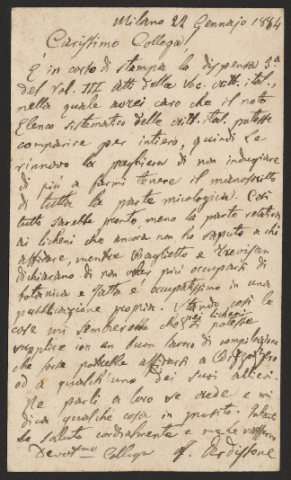 Milano 22 Gennajo 1884
Carissimo Collega!
È in corso di stampa la dispensa 3ª
del Vol. III Atti della Soc. critt. ital.,
nella quale avrei caro che il noto
Elenco sistematico delle critt. ital. potesse
comparire per intiero, quindi Le
rinnovo la preghiera di non indugiare
di più a farmi tenere il manoscritto
di tutta la parte micologica. Così
tutto sarebbe pronto meno la parte relativa
ai licheni che ancora non ho saputo a chi
affidare, mentre Baglietto e Trevisan
dichiarano di non voler più occuparsi di
botanica e Jatta è occupatissimo in una
pubblicazione propria. Stando così le
cose mi sembrerebbe che si potesse
pei licheni
supplire con un buon lavoro di compilazione
che potrebbe affidarsi a
od a qualch'uno dei suoi allievi.
Ne parli a loro se crede e mi
dica qualche cosa in proposito. Intanto
La saluto cordialmente e me Le raffermo
Devotmo Collega F. Ardissone